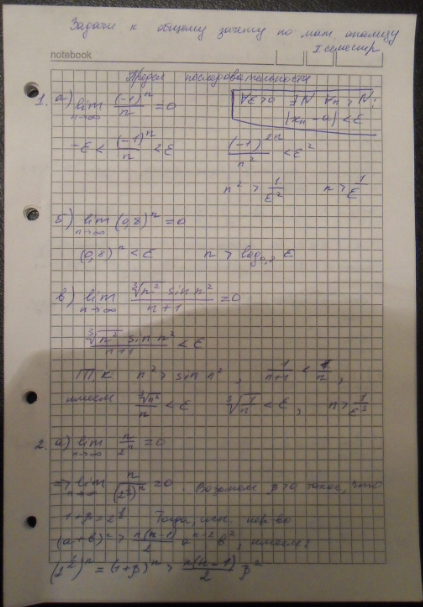 Задачи к общему зачету по мат. анализу
I семестр
notebook
Предел последовательности
1. а) lim n→∞ (-1)^n / n = 0
∀ε>0 ∃N ∀n > N:
|x_n - a| < ε
-ε < (-1)^n / n < ε (-1)^{2n} / n^2 < ε^2
n^2 > 1/ε^2 n > 1/ε
б) lim n→∞ (0,8)^n = 0
(0,8)^n < ε n > log_{0,8} ε
в) lim n→∞ ∛n^2 sin n^2 / n+1 = 0
∛n^2 sin n^2 / n+1 < ε
Т.к. n^2 > sin n^2, 1/n+1 < 1/n,
имеем ∛n^2 / n < ε ∛1/n < ε, n > 1/ε^3
2. а) lim n→∞ n / 2^n = 0
=> lim n→∞ n / (2^{1/2})^n = 0. Возьмем β>0 такое, что
1+β = 2^{1/2} Тогда, исп. нер-во
(a+b)^n > n(n-1)/2 a^{n-2} b^2, имеем:
(2^{1/2})^n = (1+β)^n > n(n-1)/2 β^2